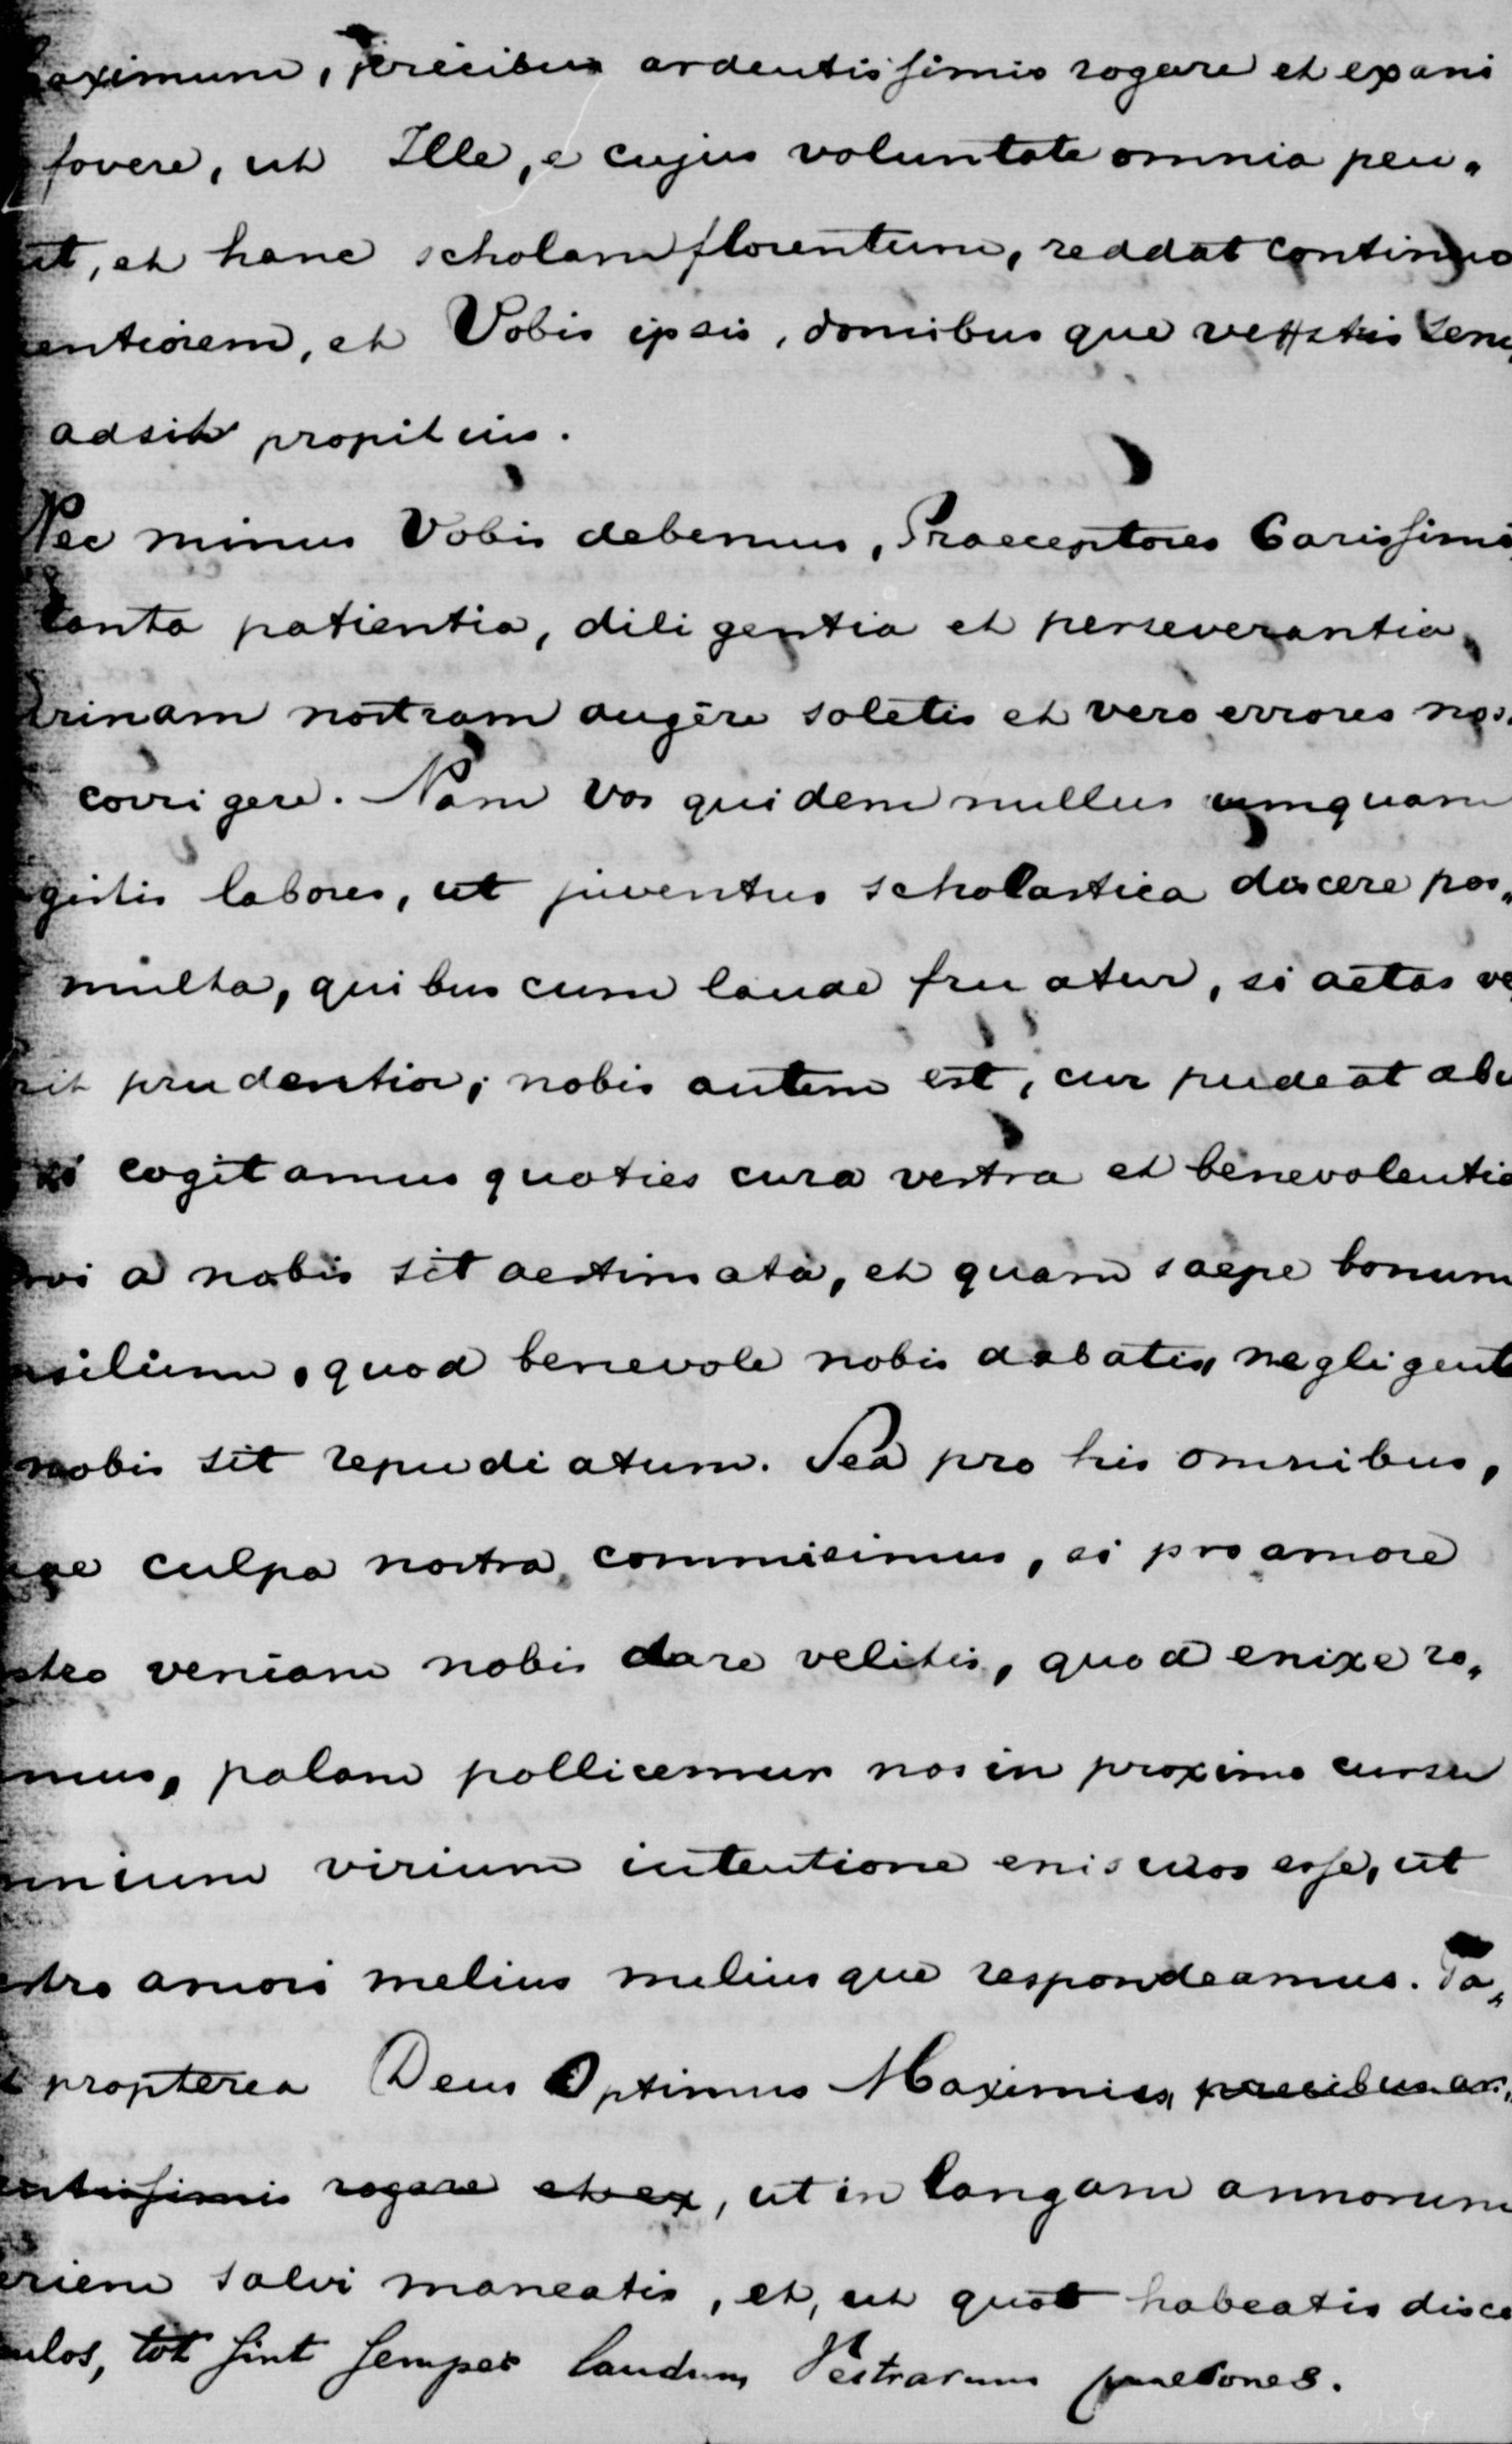 aximum, precibus ardentissimis rogare et ex ani
fovere, ut Ille, e cujus voluntate omnia pen„
et, et hanc scholam florentem, reddat continuo
entiorem, et Vobis ipsis, domibus que vestris sem
adsit propitius.
Nec minus Vobis debemus, Praeceptores Carissimi
tanta patientia, diligentia et perseverantia,
trinam nostram augere soletis et vero errores nos„
corrigere. Nam Vos quidem nullus umquam
gistis labores, ut juventus scholastica discere pos„
multa, quibus cum laude fruatur, si aetas ve
rit prudentior; nobis autem est, cur pudeat abu
si cogitamus quoties cura vestra et benevolentia
rvi a nobis sit aestimata, et quam saepe bonum
nsilium, quod benevole nobis dabatis, negligent
nobis sit repudiatum. Sed pro his omnibus,
uae culpa nostra commisimus, si pro amore
stro veniam nobis dare velitis, quod enixe ro„
mus, palam pollicemur nos in proximo cursu
mnium virium intentione enisuros esse, ut
estro amori melius meliusque respondeamus. Fa„
t propterea Deus Optimus Maximus, precibus ar„
entissimis rogare et ex, ut in longam annorum
eriem salvi maneatis, et, ut quot habeatis disci
ulos, tot sint semper laudum Vestrarum praecones.